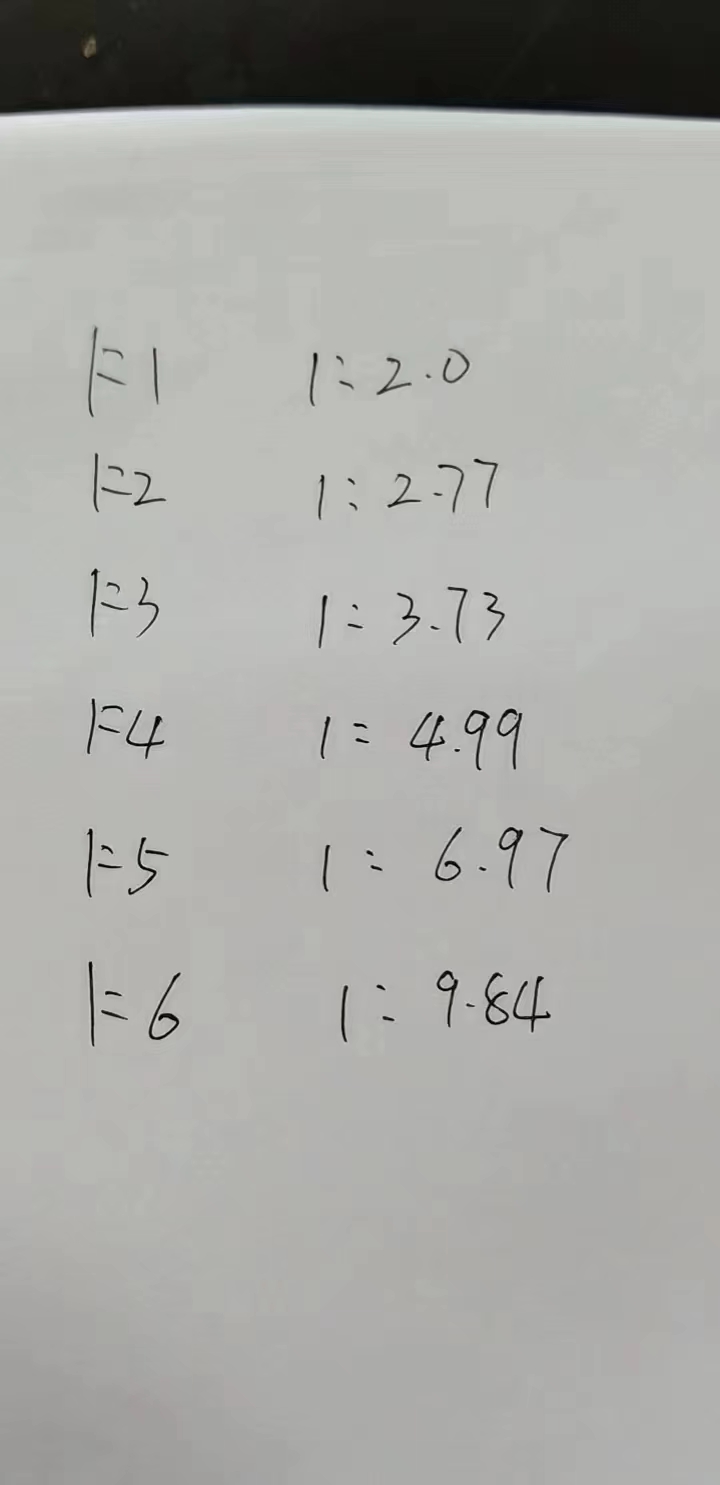 1=1 1:2.0
1=2 1:2.77
1=3 1:3.73
1=4 1:4.99
1=5 1:6.97
1=6 1:9.84